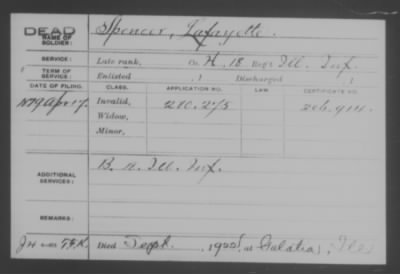 DEAD Spencer, Lafayette.
NAME OF SOLDIER:
SERVICE: Late rank, Co. H, 18 Reg't Ill. Inf.
TERM OF SERVICE: Enlisted , 1 Discharged , 1
DATE OF FILING. CLASS. APPLICATION NO. LAW. CERTIFICATE NO.
1879 Apr 17. Invalid, 280.275 206.914.
Widow,
Minor,
ADDITIONAL SERVICES: B. H. Ill. Inf.
REMARKS:
Died Sept. , 1905, at Galatia, Ill.